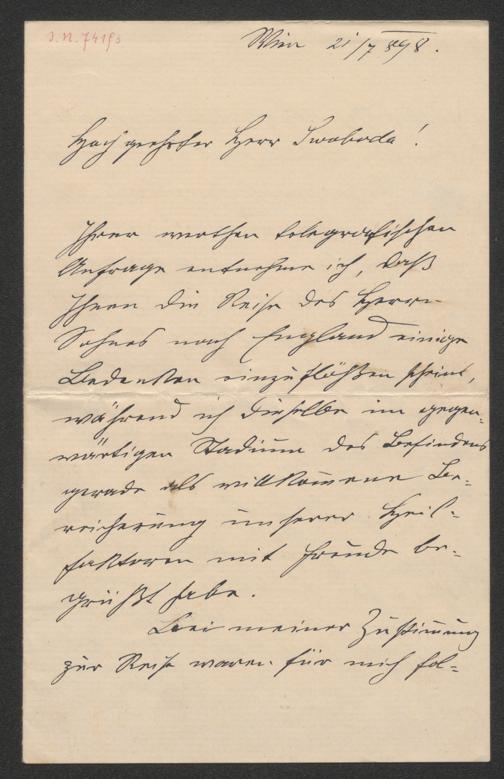 J.N. 74193
Wien 21/7 898.
Hochgeehrter Herr Swoboda!
Ihrer werthen telegrafischen
Anfrage entnehme ich, daß
Ihnen die Reise des Herrn
Sohnes nach England einige
Bedenken einzuflößen scheint,
während ich dieselbe im gegen-
wärtigen Stadium des Befindens
gerade als willkom̅ene Be-
reicherung unserer Heil-
faktoren mit Freude be-
grüßt habe.
Bei meiner Zustim̅ung
zur Reise waren für mich fol-